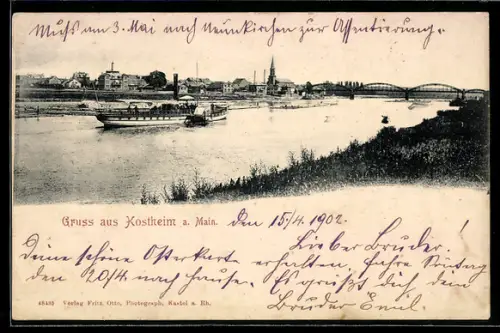 Muss am 3. Mai nach Neunkirchen zur Assentierung.
Gruss aus Kostheim a. Main. den 15/4. 1902.
Lieber Bruder. !
Deine schöne Osterkarte erhalten. fahre Sonntag
den 20/4. nach hause. Es grüßt dich dein
Bruder Emil.
48499 Verlag Fritz Otto, Photograph, Kastel a. Rh.